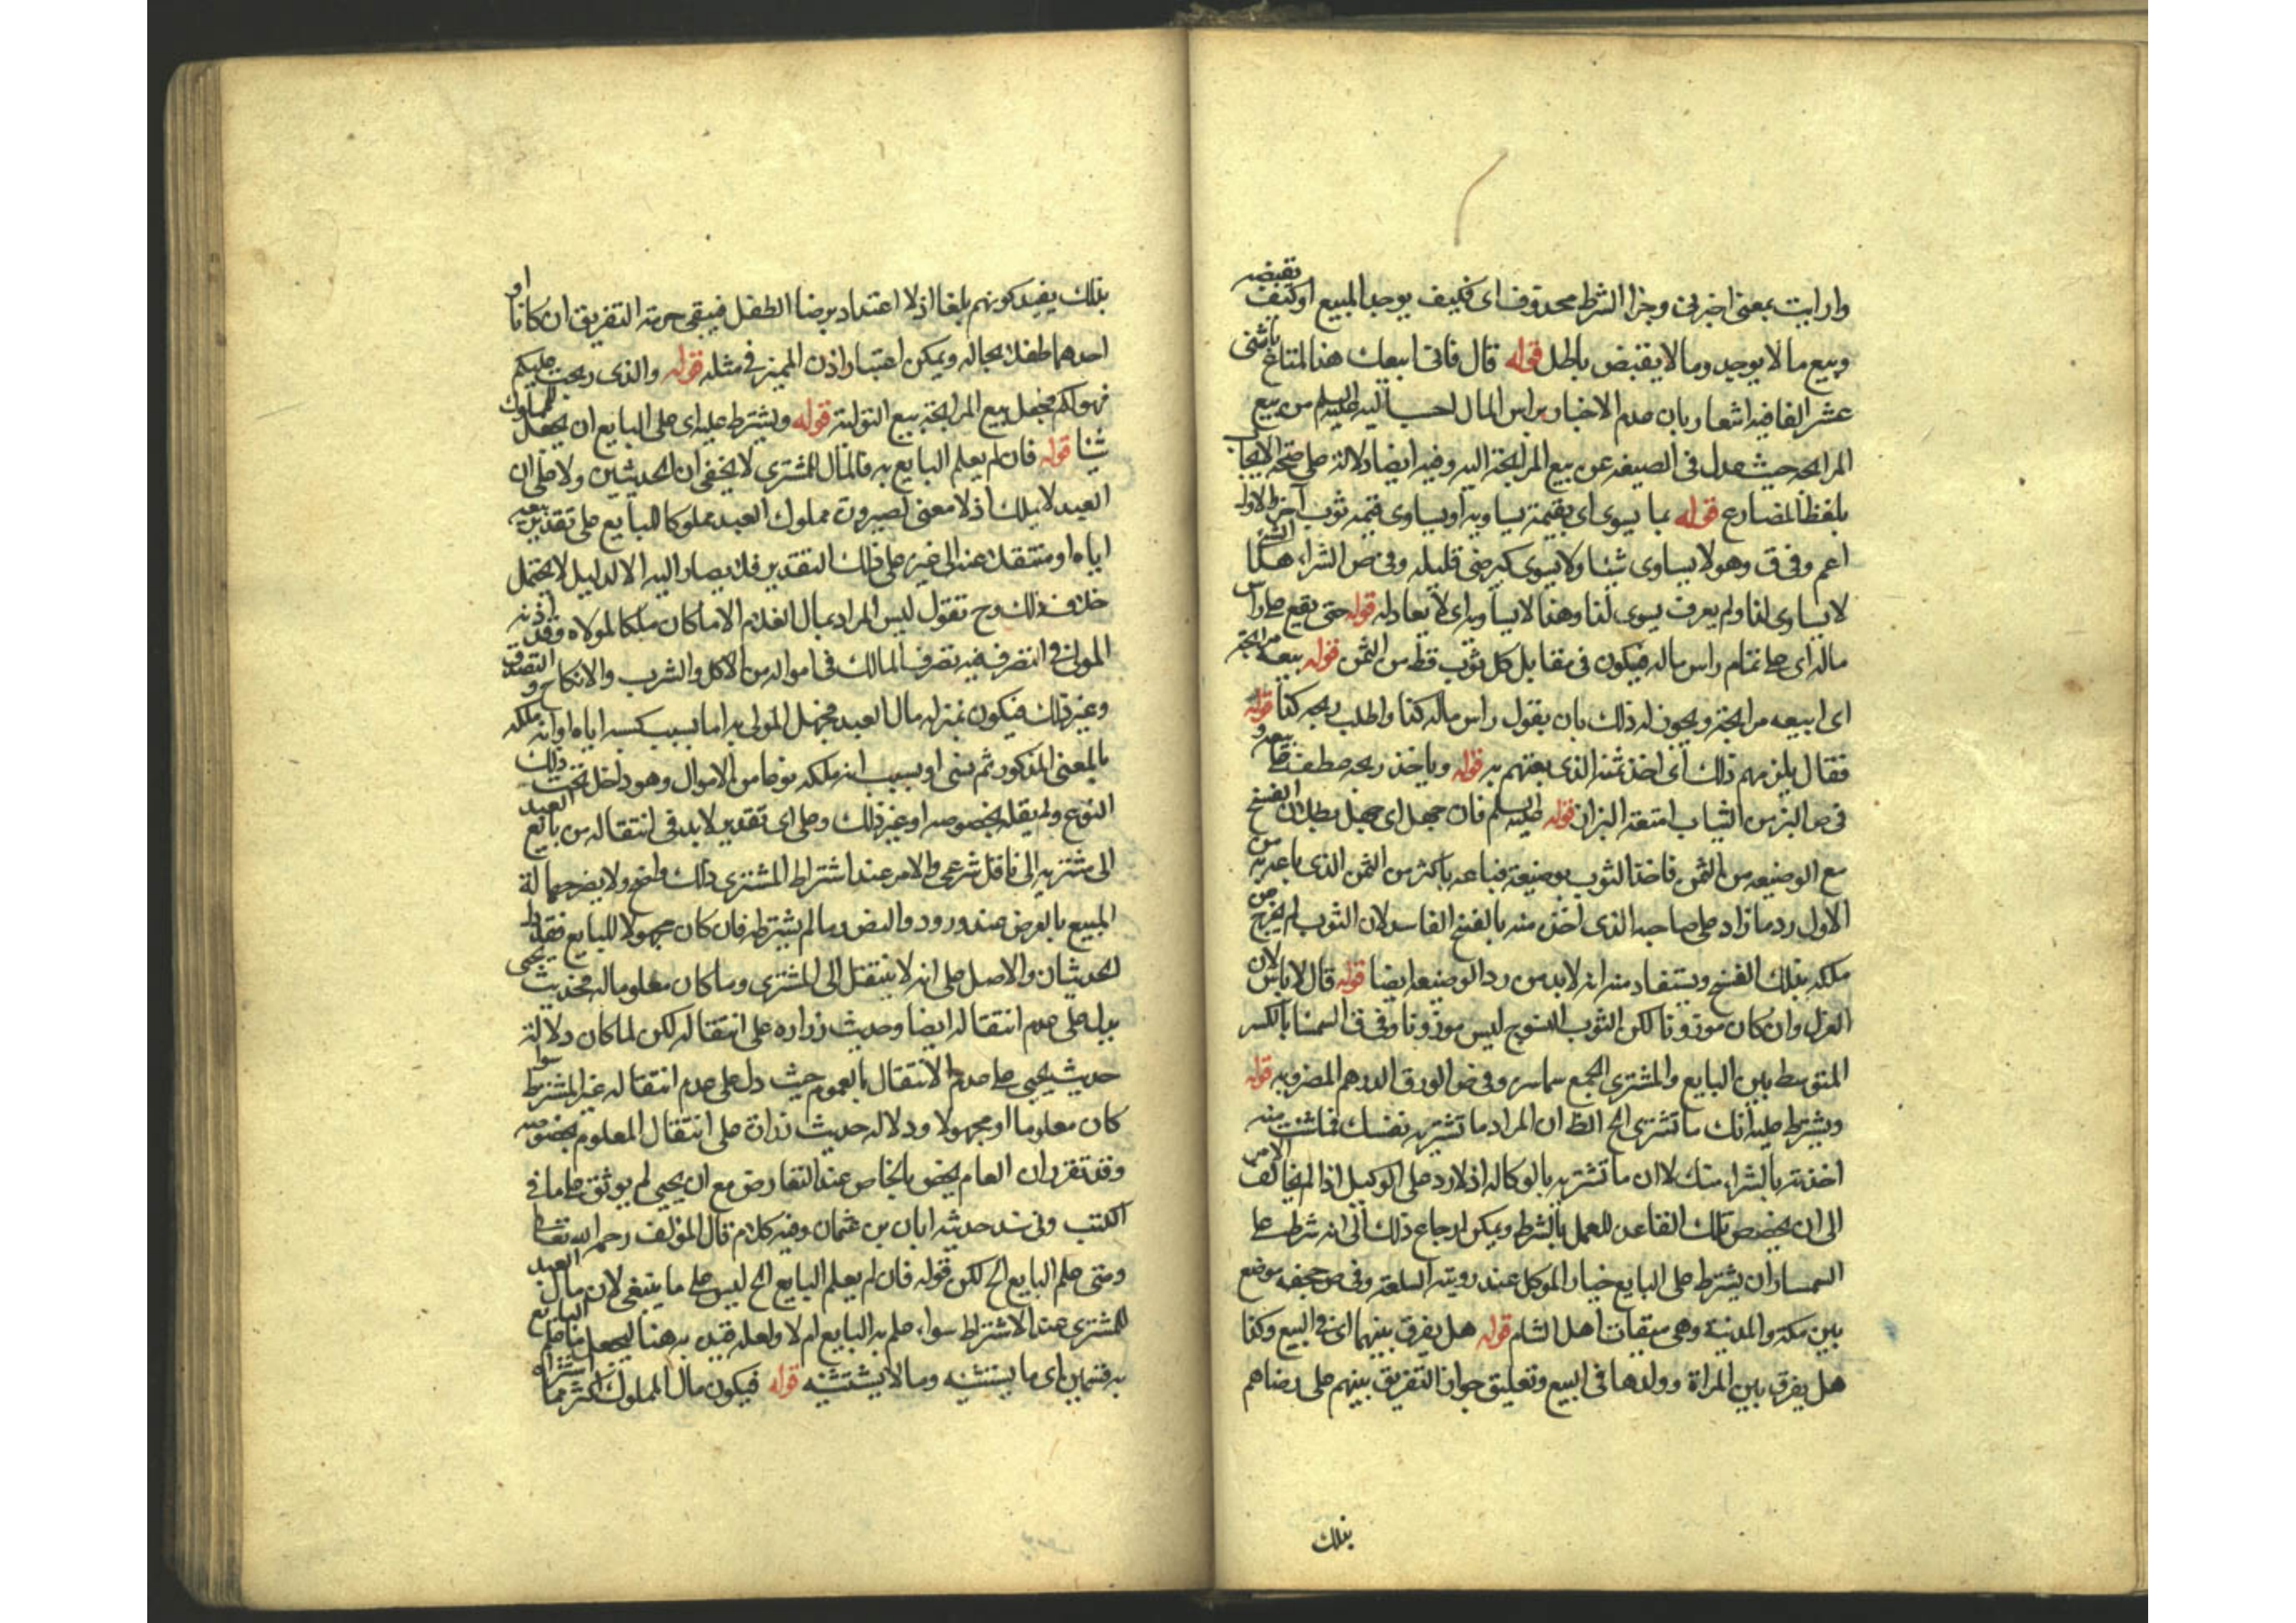 وارايت بمعنى اخبرنى وجزا الشرط محذوف اى فكيف يوجد المبيع او كيف يقبضه
وبيع ما لا يوجد وما لا يقبض باطل قوله قال فانى ابيعك هذا المتاع باثنى
عشر الفا فيه اشعار بان عدم الاخبار براس المال احب اليه عليه السلم من بيع
المرابحه حيث عدل فى الصيغه عن بيع المرابحة اليه وفيه ايضا دلالة على صحة الايجاب
بلفظ المضارع قوله بما يسوى اى بقيمة يساويه او يساوى قيمة ثوب اخر والاول
اعم وفى ق وهو لا يساوى شيئا ولا يسوى كيرضى قليلة وفى ص الشراء هذا الشئ
لا يساوى لذا ولم يعرف يسوى لذا وهنا لا يساويه اى لا يعادله قوله حتى يقع على راس
ماله اى على تمام راس ماله فيكون فى مقابل كل ثوب قط من الثمن قوله بيعه مرابحة
اى ابيعه مرابحة ويجوز له ذلك بان يقول راس ماله كذا واطلب ربحه كذا قوله
فقال يلزمهم ذلك اى اخذ ثمنه الذى بعتهم به قوله وياخذ ربحه عطف على بيعه و
فى ص البز من الثياب امتعة البزاز قوله عليه السلم فان جهل اى جهل بطلان الفسخ
مع الوضيعه من الثمن فاخذ الثوب بوضيعة فباعه باكثر من الثمن الذى باعه به من
الاول رد ما زاد على صاحبه الذى اخذ منه بالفسخ الفاسد لان الثوب لم يخرج من
ملكه بذلك الفسخ ويستفاد منه انه لا بد من رد الوضيعه ايضا قوله قال لا باس لان
الغزل وان كان موزونا لكن الثوب المنسوج ليس موزونا وفى ق السمسار بالكسر
المتوسط بين البايع والمشترى الجمع سماسرة وفى ص الورق الدرهم المضروبه قوله
ويشترط عليه انك ما تشترى الخ الظ ان المراد ما تشتريه لنفسك فما شئت منه
اخذته بالشراء منك لا ان ما تشتريه بالوكاله اذ لا رد على الوكيل اذا لم يخالف الامر
الى ان يخصص تلك القاعده للعمل بالشرط ويمكن ارجاع ذلك الى انه شرط على
السمسار ان يشترط على البايع خيار الموكل عند روية السلعة وفى ص جحفه موضع
بين مكة والمدينة وهى ميقات اهل الشام قوله هل يفرق بينهما اى فى البيع وكذا
هل يفرق بين المراة وولدها فى البيع وتعليق جواز التفريق بينهم على رضاهم
بذلك
بذلك يفيد كونهم بلغا اذ لا اعتداد برضا الطفل فيبقى حرمة التفريق ان كانا او
احدهما طفلا بحاله ويمكن اعتبار اذن المميز فى مثله قوله والذى ربحت عليكم
فهو لكم فجعل بيع المرابحة بيع التولية قوله ويشترط عليه اى على البايع ان يجعل للمملوك
شيئا قوله فان لم يعلم البايع به فالمال للمشترى لا يخفى ان الحديثين ولا على ان
العبد لا يملك اذ لا معنى لصيرورة مملوك العبد مملوكا للبايع على تقدير بيعه
اياه او منتقلا عنه الى غيره على ذلك التقدير فلا يصار اليه الا لدليل لا يحتمل
خلاف ذلك وح تقول ليس المراد بمال الغلام الا ما كان ملكا لمولاه وقد اذنه
المولى فى التصرف فيه تصرف المالك فى امواله من الاكل والشرب والانكاح و التصدق
وغير ذلك فيكون بمنزلة مال العبد فجهل المولى به اما بسبب كسبه اياه او انه ملكه
بالمعنى المذكور ثم نسى او بسبب انه ملكه نوعا من الاموال وهو داخل تحت ذلك
النوع ولم يقله بخصوصه او غير ذلك وعلى اى تقدير لا بد فى انتقاله من بايع العبد
الى مشتريه الى ناقل شرعى والامر عند اشتراط المشترى ذلك واضح ولا يضر جهالة
المبيع بالعرض عند ورود والنص وما لم يشترطه فان كان مجهولا للبايع فقد دل
الحديثان والاصل على انه لا ينتقل الى المشترى وما كان معلوما له فحديث يحيى
يدل على عدم انتقاله ايضا وحديث زراره على انتقاله لكن لما كان دلالة
حديث يحيى على عدم الانتقال بالعموم حيث دل على عدم انتقاله غير المشترط سوا
كان معلوما او مجهولا ودلاله حديث زرارة على انتقال المعلوم بخصوصه
وقد تقرر ان العام يخص بالخاص عند التعارض مع ان يحيى لم يوثق على ما فى
الكتب وفى سند حديثه ابان بن عثمان وفيه كلام قال المؤلف رحمه الله تعالى
ومتى علم البايع الخ لكن قوله فان لم يعلم البايع الخ ليس على ما ينبغى لان مال العبد
للمشترى عند الاشتراط سواء علم به البايع ام لا ولعله قيد به هنا ليجعل ما علم البايع
به قسمين اى ما يستثنيه وما لا يستثنيه قوله فيكون مال المملوك اكثر مما اشتراه